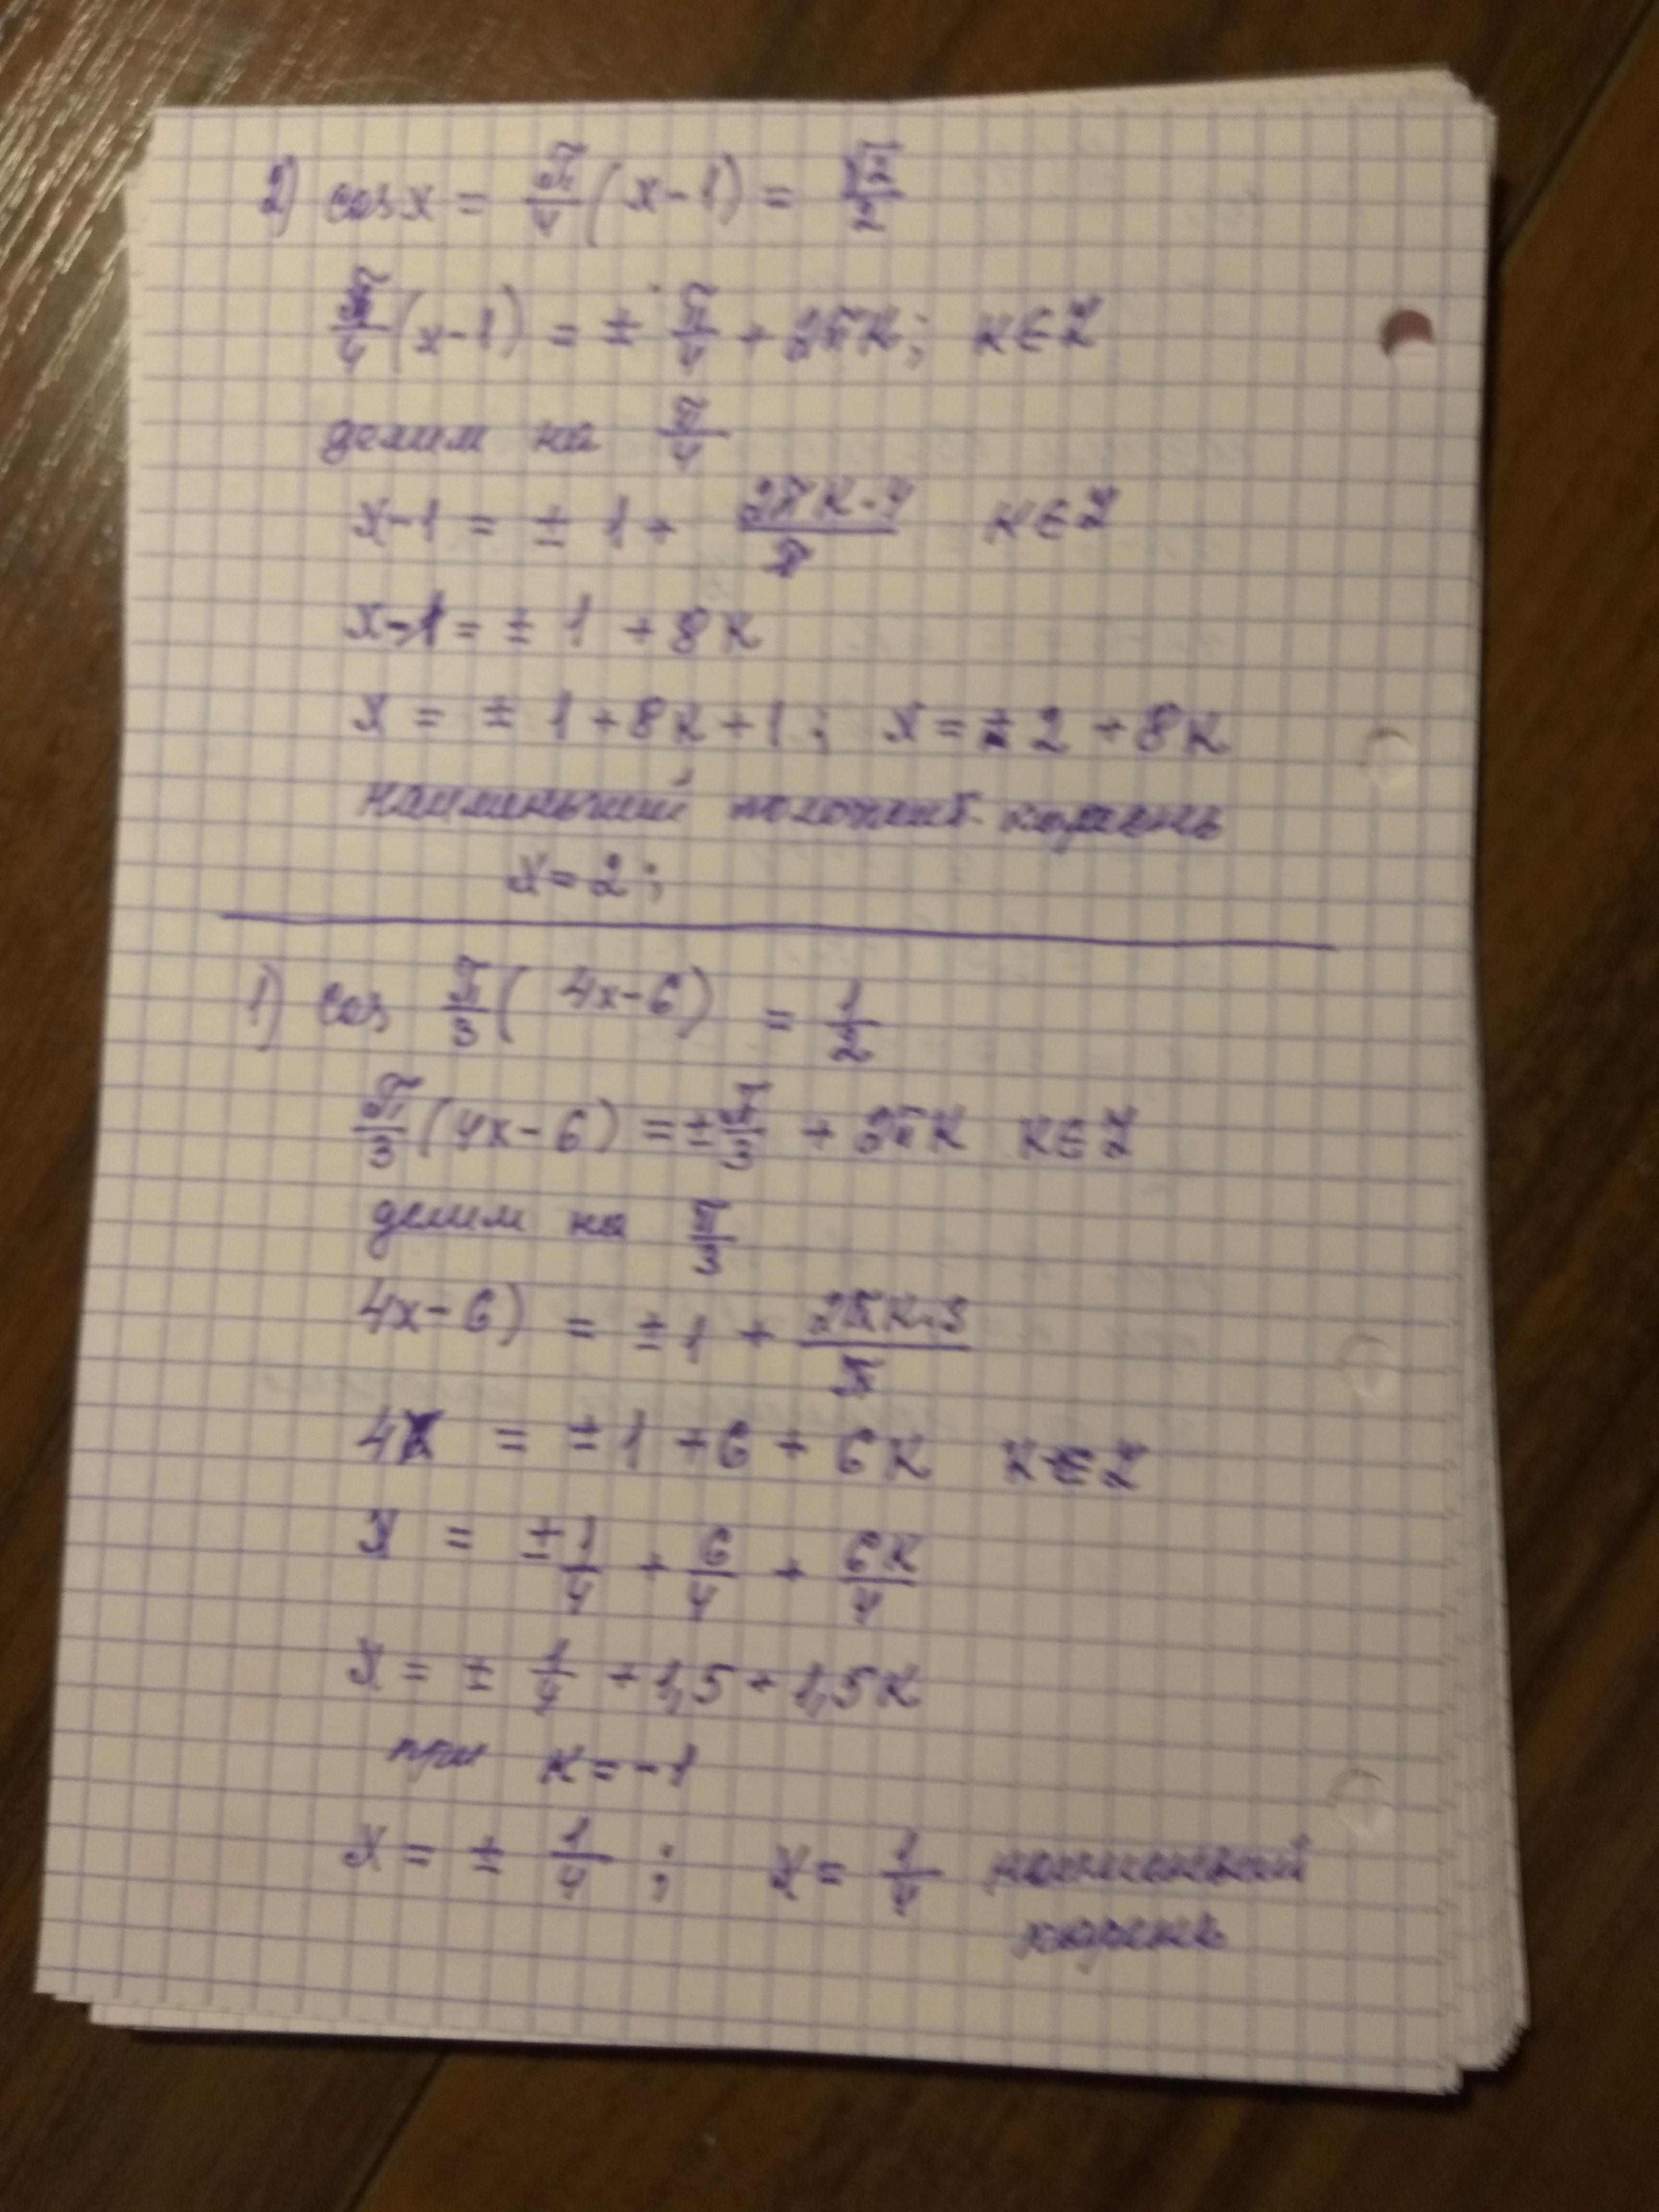 2) cos x = π/4 (x-1) = √2/2
π/4 (x-1) = ± π/4 + 2πк; к∈Z
делим на π/4
x-1 = ± 1 + 2πк·4/π к∈Z
x-1 = ± 1 + 8к
x = ± 1 + 8к + 1; x = ± 2 + 8к
наименьший положит. корень
x = 2;
1) cos π/3 ( 4x-6) = 1/2
π/3 (4x-6) = ± π/3 + 2πк к∈Z
делим на π/3
4x-6) = ±1 + 2πк·3/π
4x = ±1 +6 + 6к к∈Z
x = ±1/4 + 6/4 + 6к/4
x = ± 1/4 + 1,5 + 1,5к
при к = -1
x = ± 1/4 ; x = 1/4 наименьший
корень